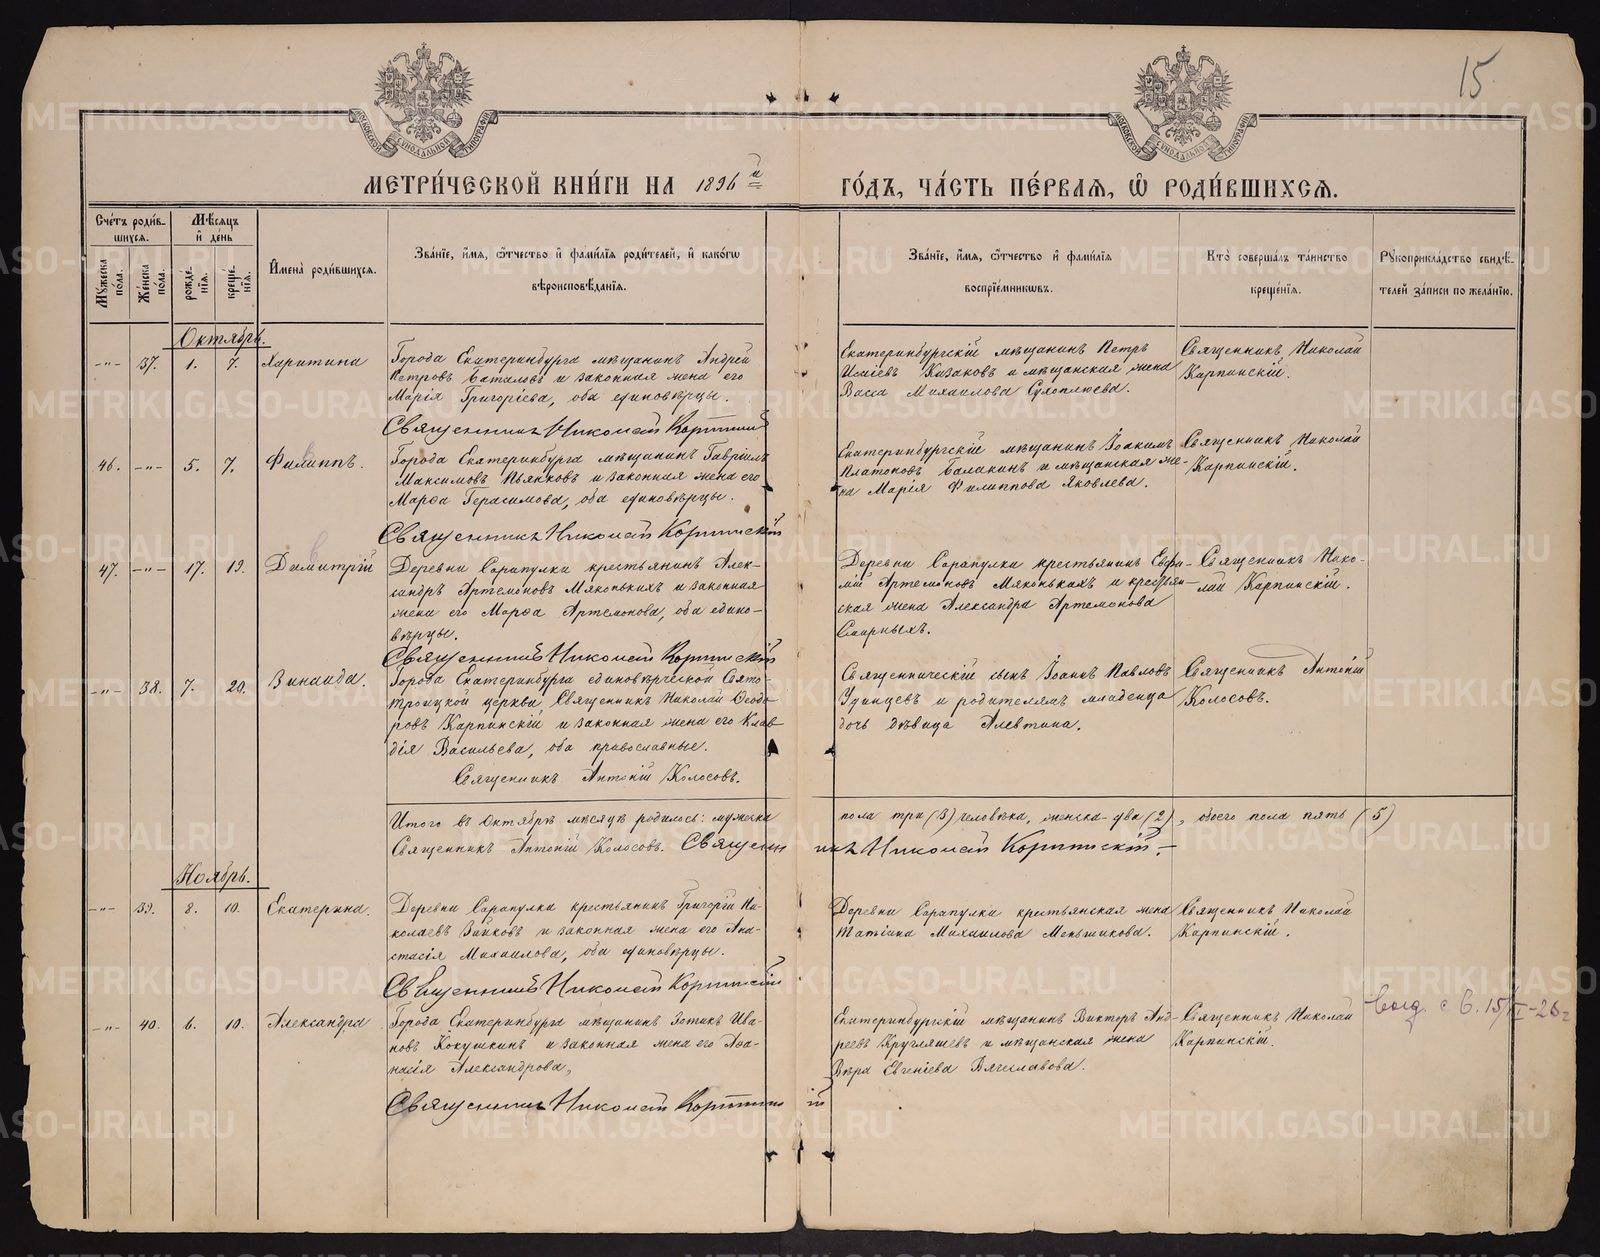 15
МОСКОВСКОЙ СѴНОДАЛЬНОЙ ТИПОГРАФІИ
МОСКОВСКОЙ СѴНОДАЛЬНОЙ ТИПОГРАФІИ
МЕТРИ́ЧЕСКОЙ КНИ́ГИ НА 1896 й ГО́ДЪ, ЧА́СТЬ ПЕ́РВАЯ, Ѡ҆ РОДИ́ВШИХСѦ.
Сче́тъ роди́в-
шихся.
Мѣ́сяцъ
и҆ де́нь
Му́жеска по́ла.
Же́нска по́ла.
рожде́нїя.
креще́нїя.
И҆мена̀ роди́вшихся.
Зва́нїе, и҆́мя, ѻ҆́тчество и҆ фами́лїя роди́телей, и҆ како́гѡ
вѣроисповѣ́данїя.
Зва́нїе, и҆́мя, ѻ҆́тчество и҆ фами́лїя
воспрїе́мникѡвъ.
Кто̀ соверша́лъ та́инство
креще́нїя.
Рꙋкоприкла́дство свидѣ́-
телей за́писи по жела́нїю.
Октябрь.
-"- 37. 1. 7. Харитина
Города Екатеринбурга мѣщанинъ Андрей
Петровъ Баталовъ и законная жена его
Марія Григоріева, оба единовѣрцы.
Священникъ Николай Карпинскій
Екатеринбургскій мѣщанинъ Петръ
Исаіевъ Казаковъ и мѣщанская жена
Васса Михаилова Сухоплюева.
Священникъ Николай
Карпинскій.
46. -"- 5. 7. Филиппъ.
Города Екатеринбурга мѣщанинъ Гавріилъ
Максимовъ Пьянковъ и законная жена его
Марѳа Герасимова, оба единовѣрцы.
Священникъ Николай Карпинскій
Екатеринбургскій мѣщанинъ Іоакимъ
Платоновъ Балакинъ и мѣщанская же-
на Марія Филиппова Яковлева.
Священникъ Николай
Карпинскій.
47. -"- 17. 19. Димитрій
Деревни Сарапулки крестьянинъ Алек-
сандръ Артемоновъ Мяконькихъ и законная
жена его Марѳа Артемонова, оба едино-
вѣрцы.
Священникъ Николай Карпинскій
Деревни Сарапулки крестьянинъ Евфи-
мій Артемоновъ Мяконькихъ и крестьян-
ская жена Александра Артемонова
Смирныхъ.
Священникъ Нико-
лай Карпинскій.
-"- 38. 7. 20. Зинаида.
Города Екатеринбурга единовѣрческой Свято-
троицкой церкви, Священникъ Николай Ѳеодо-
ровъ Карпинскій и законная жена его Клав-
дія Васильева, оба православные.
Священникъ Антоній Колосовъ.
Священническій сынъ Іоаннъ Павловъ
Удинцевъ и родителямъ младенца
дочь дѣвица Алевтина.
Священникъ Антоній
Колосовъ.
Итого въ Октябрѣ мѣсяцѣ родилось: мужска пола три (3) человѣка, женска-два (2), обоего пола пять (5)
Священникъ Антоній Колосовъ. Священникъ Николай Карпинскій.-
Ноябрь.
-"- 39. 8. 10. Екатерина.
Деревни Сарапулки крестьянинъ Григорій Ни-
колаевъ Зайковъ и законная жена его Ана-
стасія Михаилова, оба единовѣрцы.
Священникъ Николай Карпинскій
Деревни Сарапулки крестьянская жена
Татіана Михаилова Меньшикова.
Священникъ Николай
Карпинскій.
-"- 40. 6. 10. Александра
Города Екатеринбурга мѣщанинъ Зотикъ Ива-
новъ Кокушкинъ и законная жена его Аѳа-
насія Александрова,
Священникъ Николай Карпинскій
Екатеринбургскій мѣщанинъ Викторъ Анд-
реевъ Кругляшевъ и мѣщанская жена
Вѣра Евгеніева Вячеславова.
Священникъ Николай
Карпинскій.
METRIKI.GASO-URAL.RU